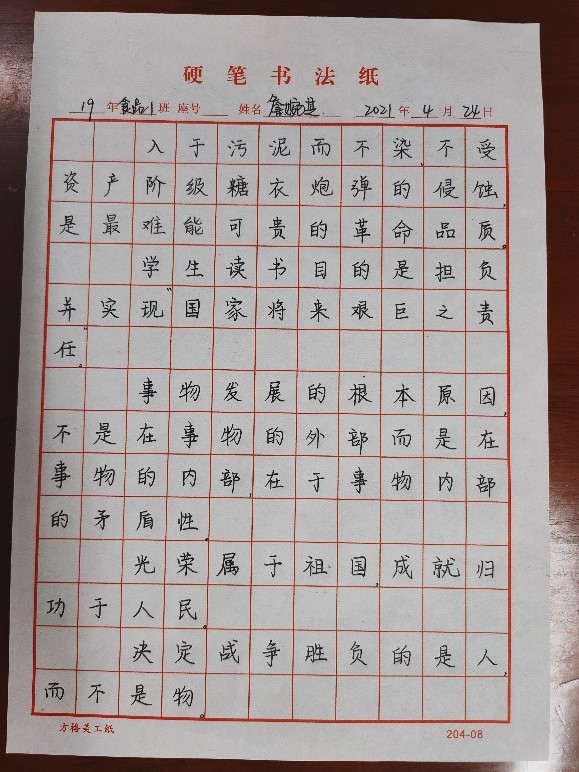 硬笔书法纸
19年食品1班 座号 姓名 2021年4月24日
入于污泥而不染,不受
资产阶级糖衣炮弹的侵蚀,
是最难能可贵的革命品质。
学生读书目的是担负
并实现“国家将来艰巨之责
任”。
事物发展的根本原因,
不是在事物的外部而是在
事物的内部,在于事物内部
的矛盾性。
光荣属于祖国,成就归
功于人民。
决定战争胜负的是人,
而不是物。
方格美工纸 204-08